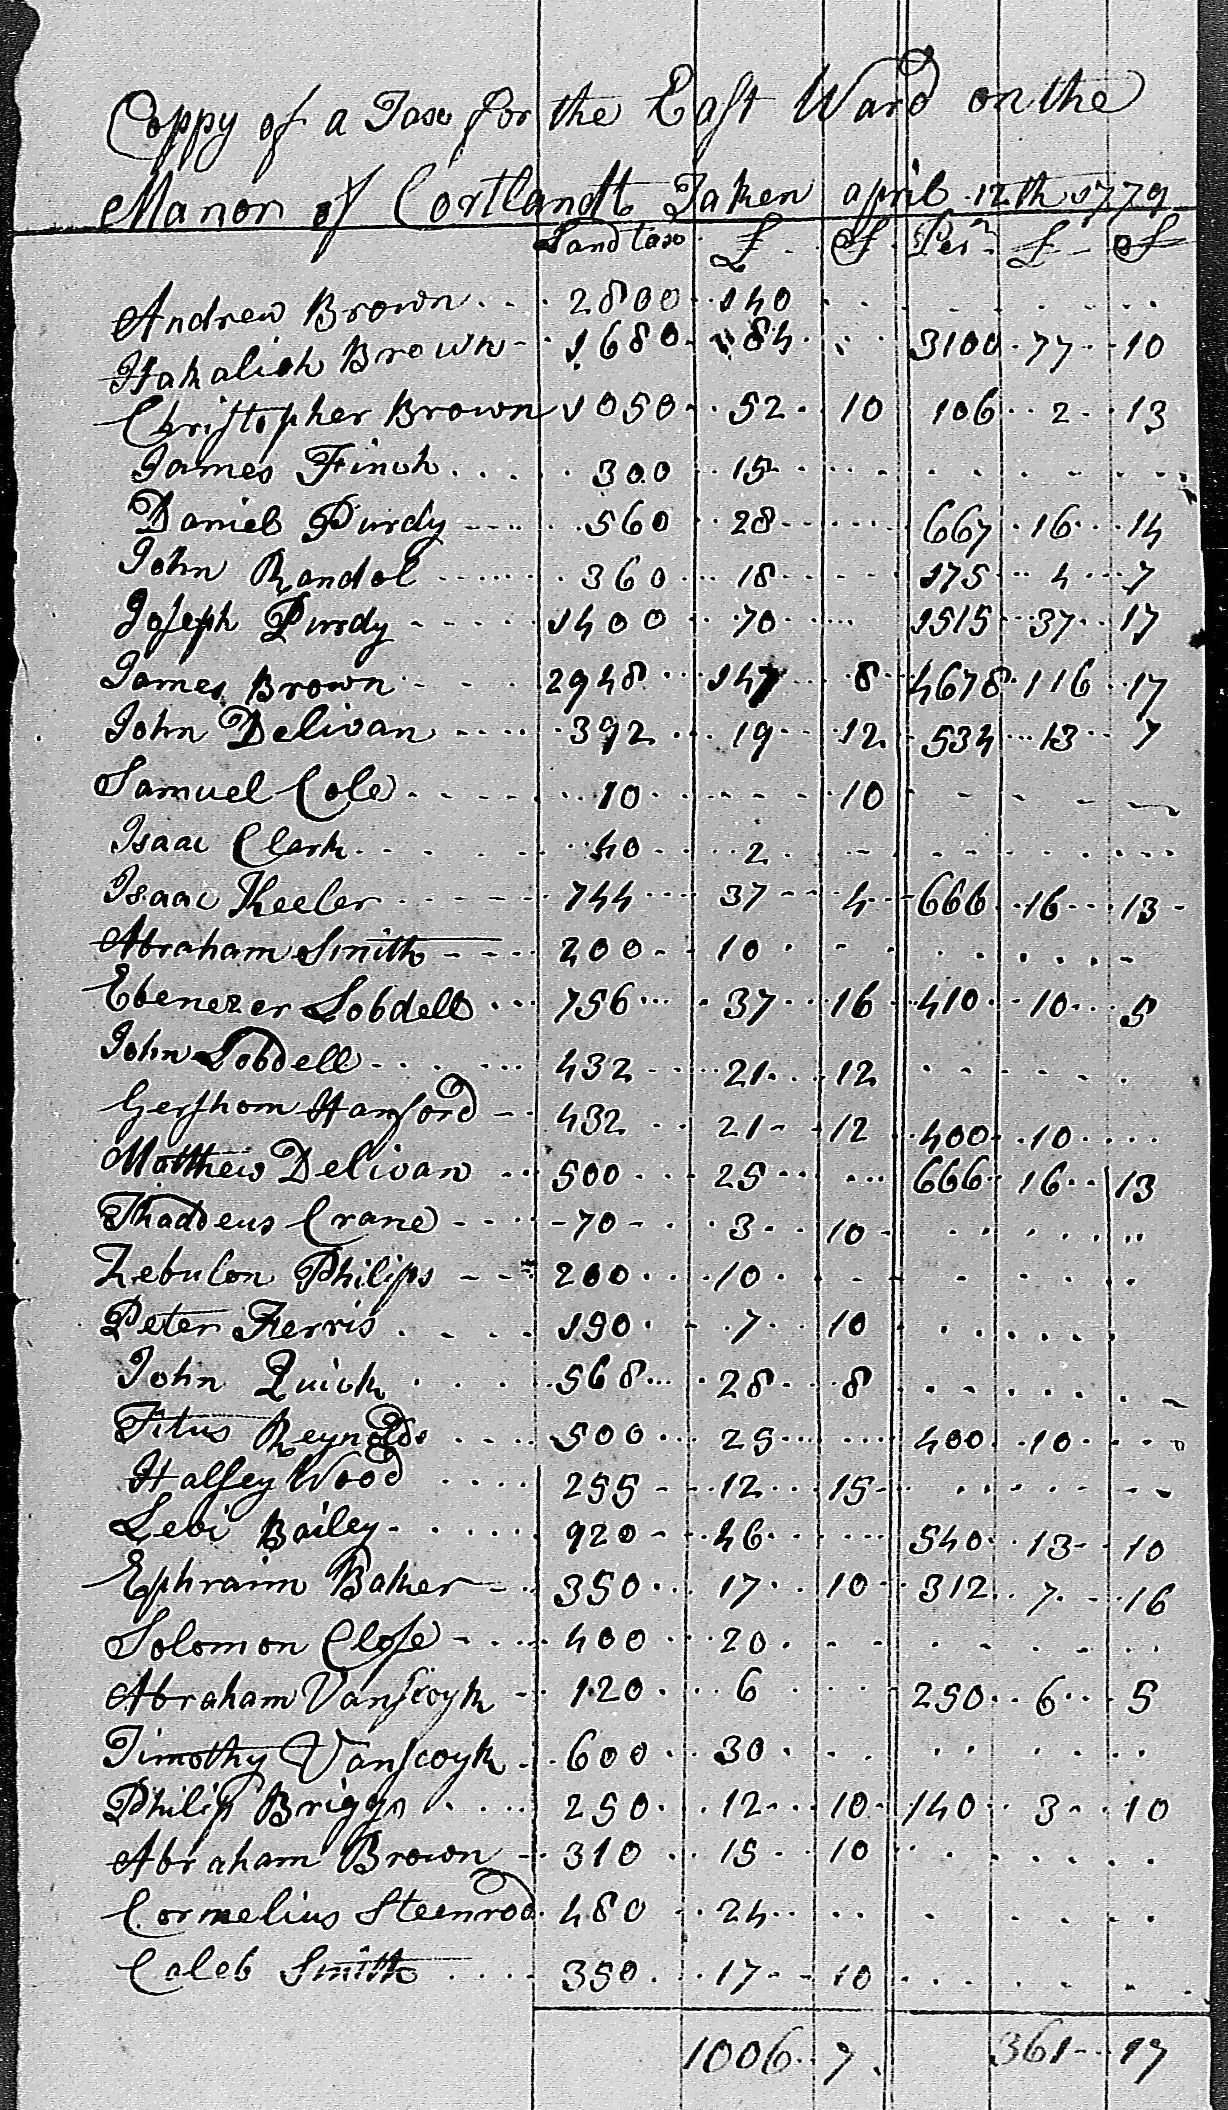 Coppy of a Tax for the East Ward on the
Manor of Cortlandt Taken april 12th 1779
Land tax £ S Per £ S
Andrew Brown 2800 140
Hakaliah Brown 1680 84 3100 77 10
Christopher Brown 1050 52 10 106 2 13
James Finch 300 15
Daniel Purdy 560 28 667 16 14
John Randol 360 18 175 4 7
Joseph Purdy 1400 70 1515 37 17
James Brown 2948 147 8 4678 116 17
John Delivan 392 19 12 534 13 7
Samuel Cole 10 10
Isaac Clark 40 2
Isaac Keeler 744 37 4 666 16 13
Abraham Smith 200 10
Ebenezer Lobdell 756 37 16 410 10 5
John Lobdell 432 21 12
Gershom Hanford 432 21 12 400 10
Matthew Delivan 500 25 666 16 13
Thaddeus Crane 70 3 10
Zebulon Philips 200 10
Peter Ferris 190 7 10
John Quick 568 28 8
Titus Reynolds 500 25 400 10
Halsey Wood 255 12 15
Levi Bailey 920 46 540 13 10
Ephraim Baker 350 17 10 312 7 16
Solomon Close 400 20
Abraham Vanscoyk 120 6 250 6 5
Timothy Vanscoyk 600 30
Philip Briggs 250 12 10 140 3 10
Abraham Brown 310 15 10
Cornelius Steenrod 480 24
Caleb Smith 350 17 10
1006 7 361 17